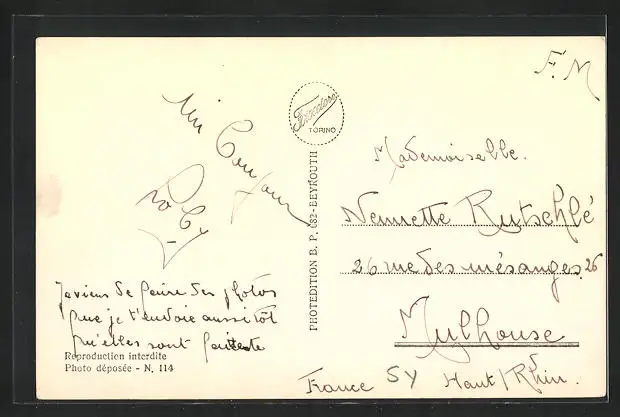 F. M
Un Bonjour
Roby
Je viens de faire des photos
que je t'envoie aussitôt
qu'elles sont faites
Reproduction interdite
Photo déposée - N. 114
TORINO
PHOTEDITION B. P. 682 - BEYROUTH
Mademoiselle
Nennette Rutschlé
26 rue des mésanges 26
Mulhouse
France Haut/Rhin.